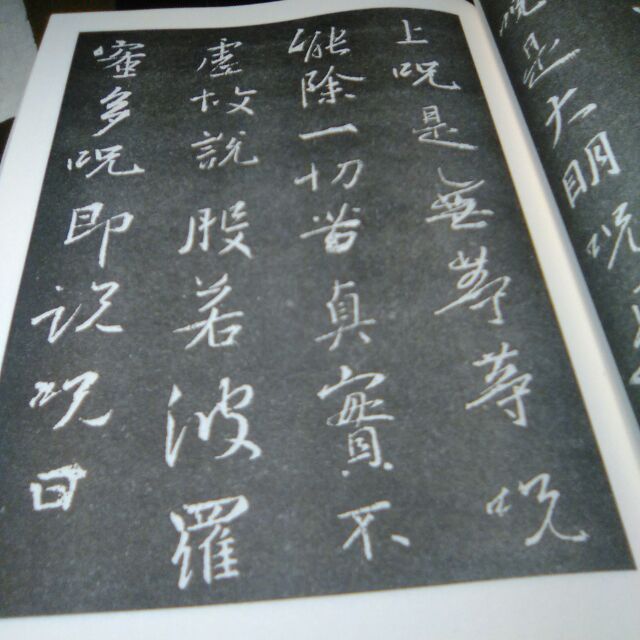 呪是大明呪
上呪是無等等呪
能除一切苦真實不
虛故說般若波羅
蜜多呪即說呪曰